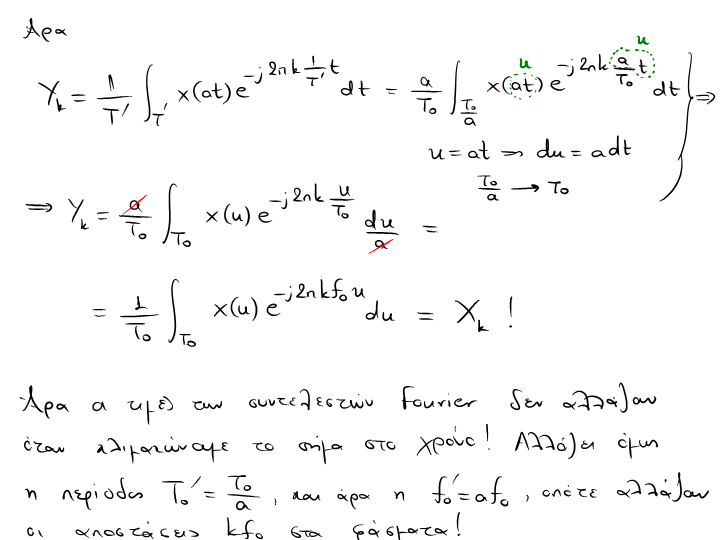 Άρα
Y_k = 1/T' ∫_{T'} x(at) e^{-j2πk (1/T') t} dt = a/T₀ ∫_{T₀/a} x(at) e^{-j2πk (a/T₀) t} dt } ⇒
u u
u = at ⇒ du = a dt
T₀/a → T₀
⇒ Y_k = a/T₀ ∫_{T₀} x(u) e^{-j2πk u/T₀} du/a =
= 1/T₀ ∫_{T₀} x(u) e^{-j2πkf₀u} du = X_k !
Άρα οι τιμές των συντελεστών Fourier δεν αλλάζουν
όταν κλιματώνουμε το σήμα στο χρόνο! Αλλάζει όμως
η περίοδος T₀' = T₀/a, και άρα η f₀' = af₀, οπότε αλλάζουν
οι αποστάσεις kf₀ στα φάσματα!